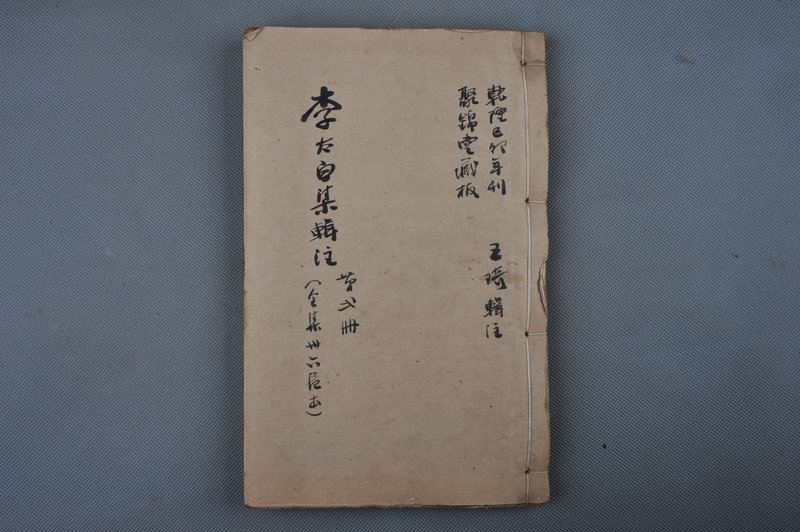 乾隆己卯年刊
聚錦堂藏板
王琦輯注
李太白集輯注
第弍冊
(全集卅六卷本)